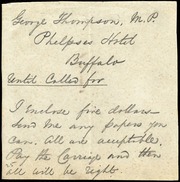 George Thompson, M.P.
Phelpses Hotel
Buffalo
Until Called for
I enclose five dollars
Send me any papers you
can. All are acceptable.
Pay the Carriage and then
all will be right